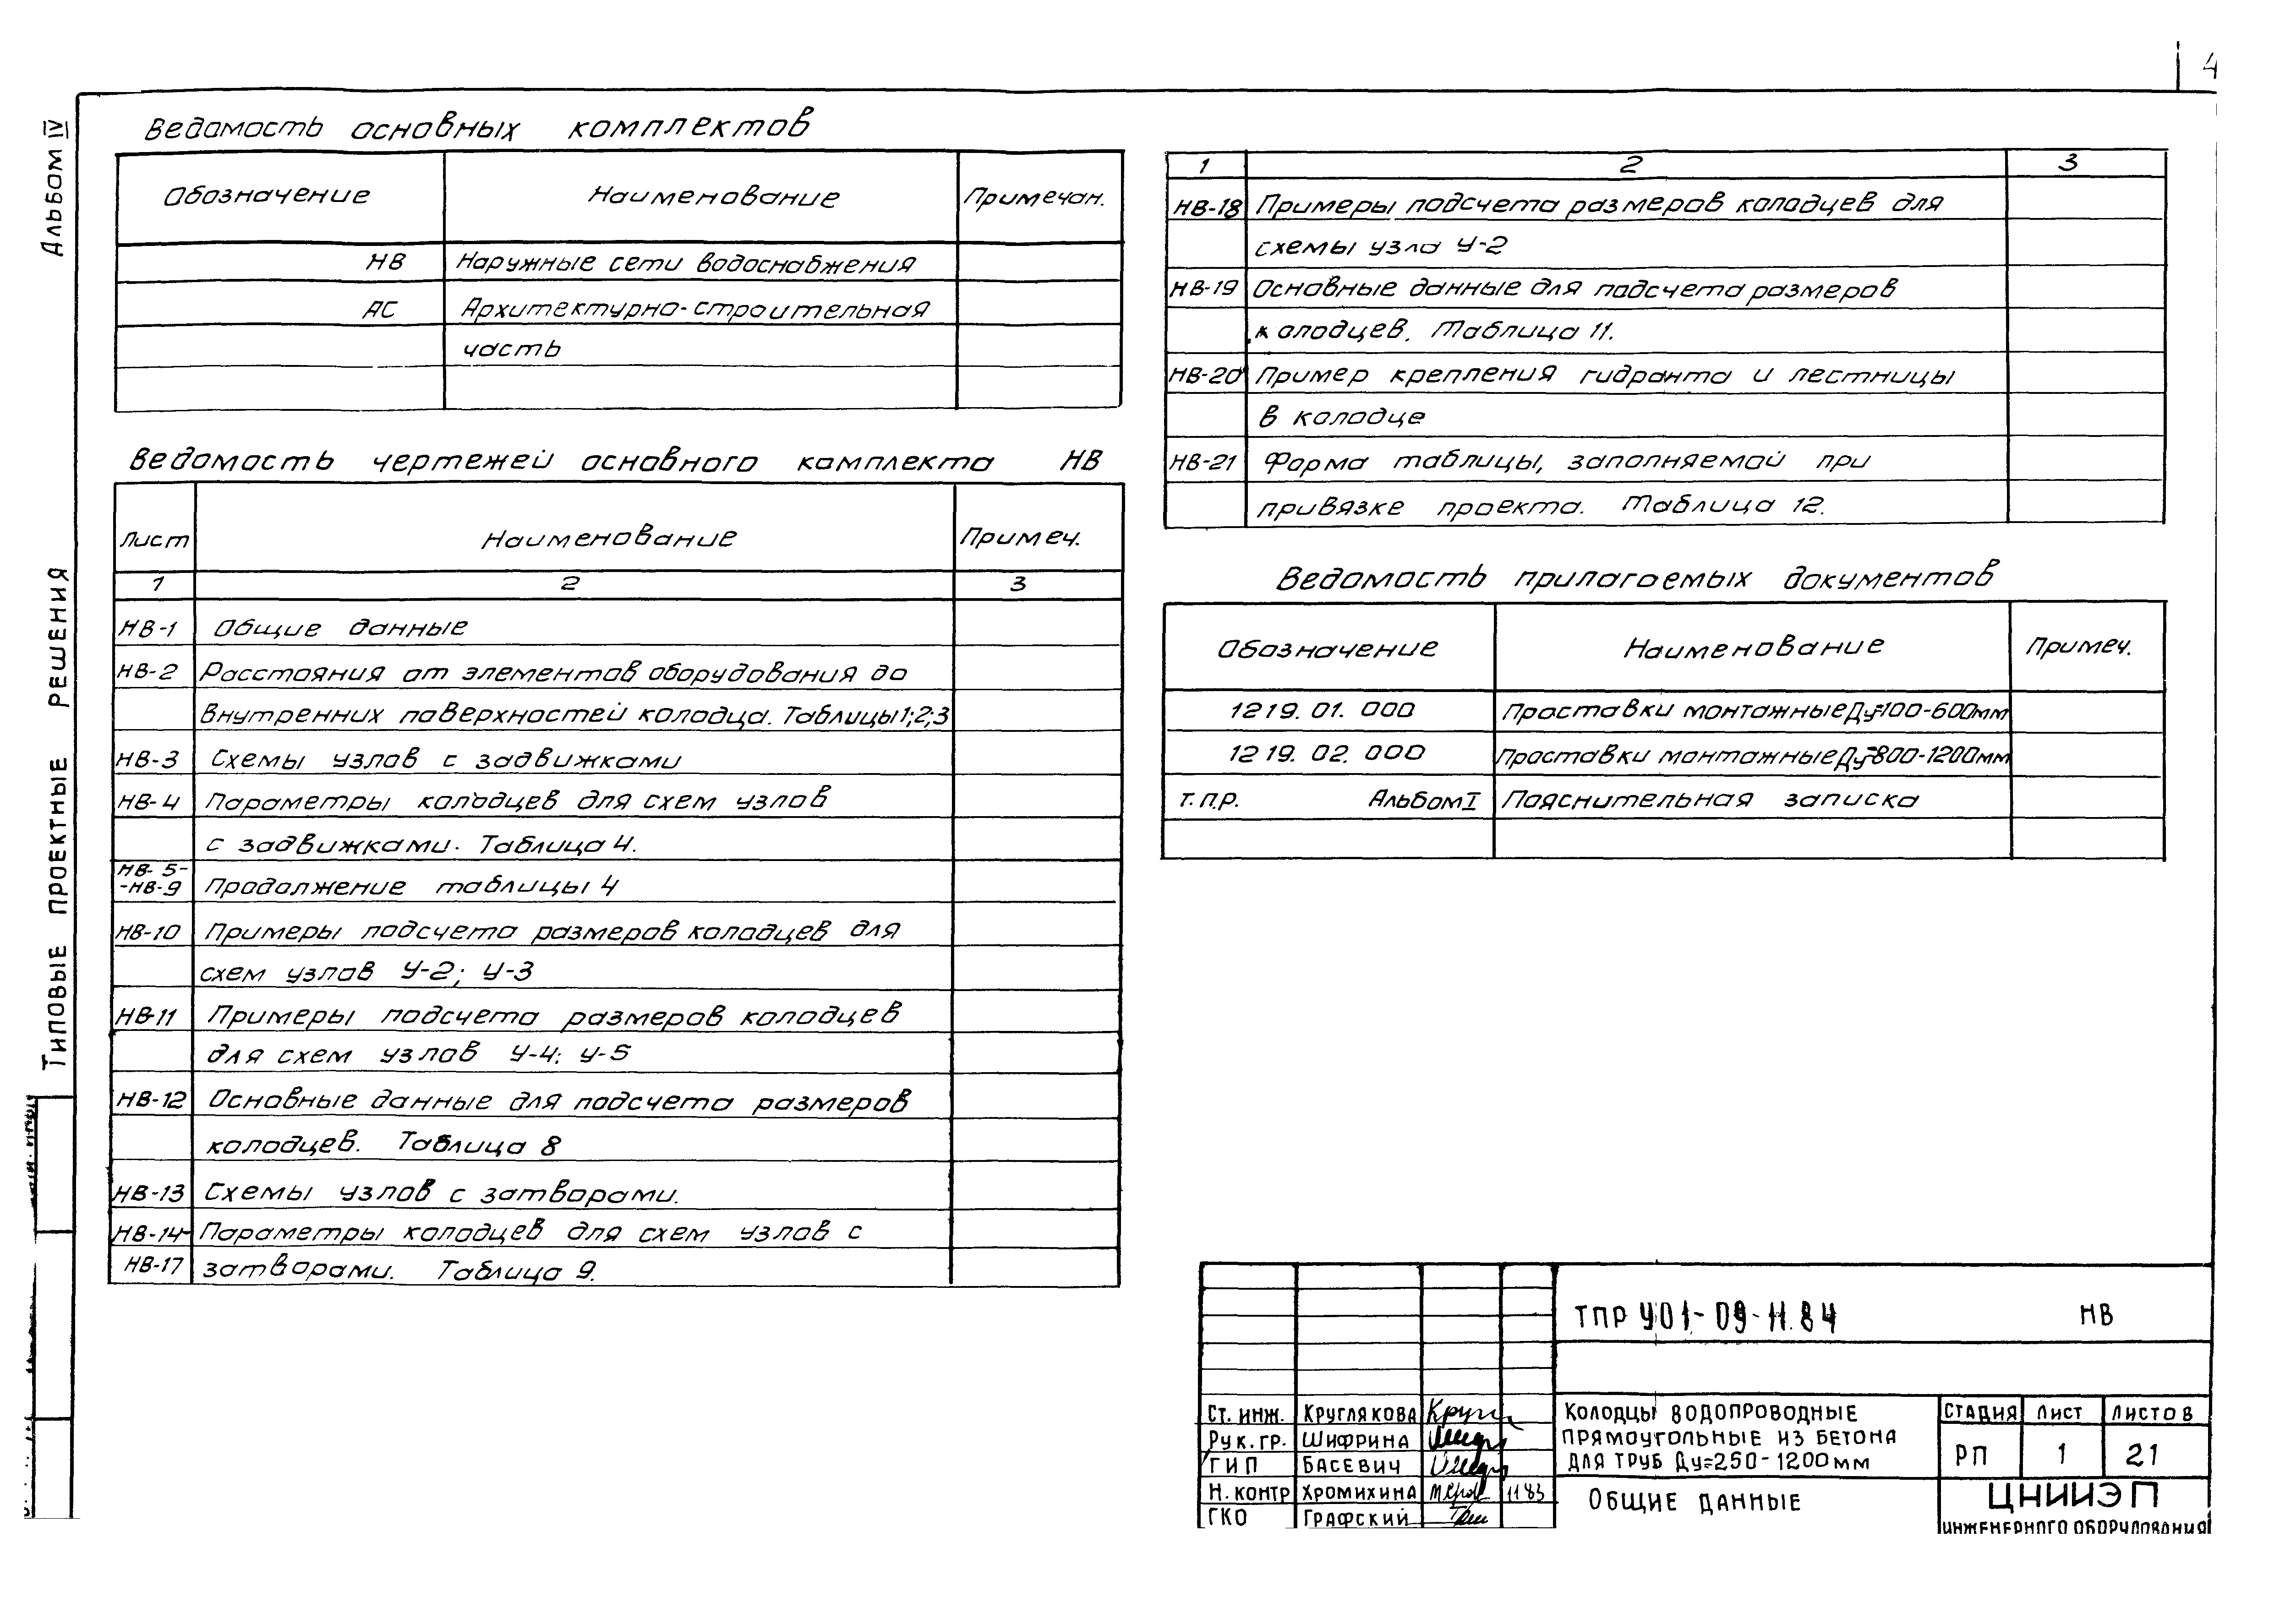 4
Альбом IV
Типовые проектные решения
Ведомость основных комплектов
Обозначение Наименование Примечан.
НВ Наружные сети водоснабжения
АС Архитектурно-строительная
часть
Ведомость чертежей основного комплекта НВ
Лист Наименование Примеч.
1 2 3
НВ-1 Общие данные
НВ-2 Расстояния от элементов оборудования до
внутренних поверхностей колодца. Таблицы 1;2;3
НВ-3 Схемы узлов с задвижками
НВ-4 Параметры колодцев для схем узлов
с задвижками. Таблица 4.
НВ-5-
-НВ-9 Продолжение таблицы 4
НВ-10 Примеры подсчета размеров колодцев для
схем узлов У-2; У-3
НВ-11 Примеры подсчета размеров колодцев
для схем узлов У-4; У-5
НВ-12 Основные данные для подсчета размеров
колодцев. Таблица 8
НВ-13 Схемы узлов с затворами.
НВ-14- Параметры колодцев для схем узлов с
НВ-17 затворами. Таблица 9.
1 2 3
НВ-18 Примеры подсчета размеров колодцев для
схемы узла У-2
НВ-19 Основные данные для подсчета размеров
колодцев. Таблица 11.
НВ-20 Пример крепления гидранта и лестницы
в колодце
НВ-21 Форма таблицы, заполняемой при
привязке проекта. Таблица 12.
Ведомость прилагаемых документов
Обозначение Наименование Примеч.
1219.01.000 Проставки монтажные Ду=100-600мм
1219.02.000 Проставки монтажные Ду=800-1200мм
т.п.р. Альбом I Пояснительная записка
ТПР 901-09-11.84 НВ
Ст. инж. Круглякова
Рук. гр. Шифрина
ГИП Басевич
Н. контр Хромихина 11 83
ГКО Графский
Колодцы водопроводные
прямоугольные из бетона
для труб Ду=250-1200мм
Стадия Лист Листов
РП 1 21
Общие данные
ЦНИИЭП
инженерного оборудования